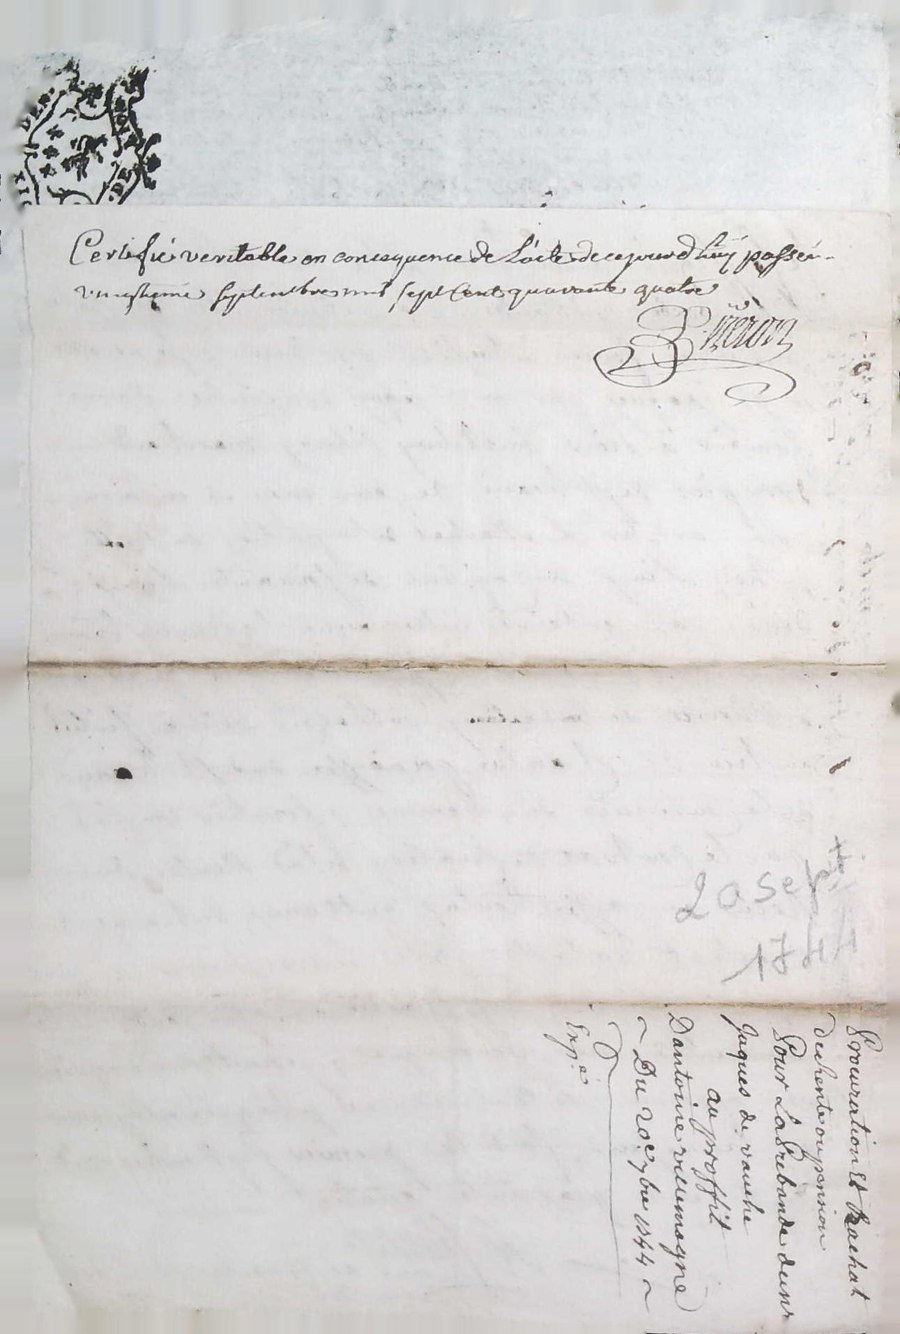 Certifié veritable en consequence de L'acte de cejourd'huy passé
vingtieme Septembre mil sept Cent quarante quatre
20 Sept
1744
Procuration Et Rachat
de rente ou pension
Pour La Prebande d'un
Jaques de vauche
au proffit
Dantoine villemagne
~ Du 20e. 7bre 1744 ~
Exp.e